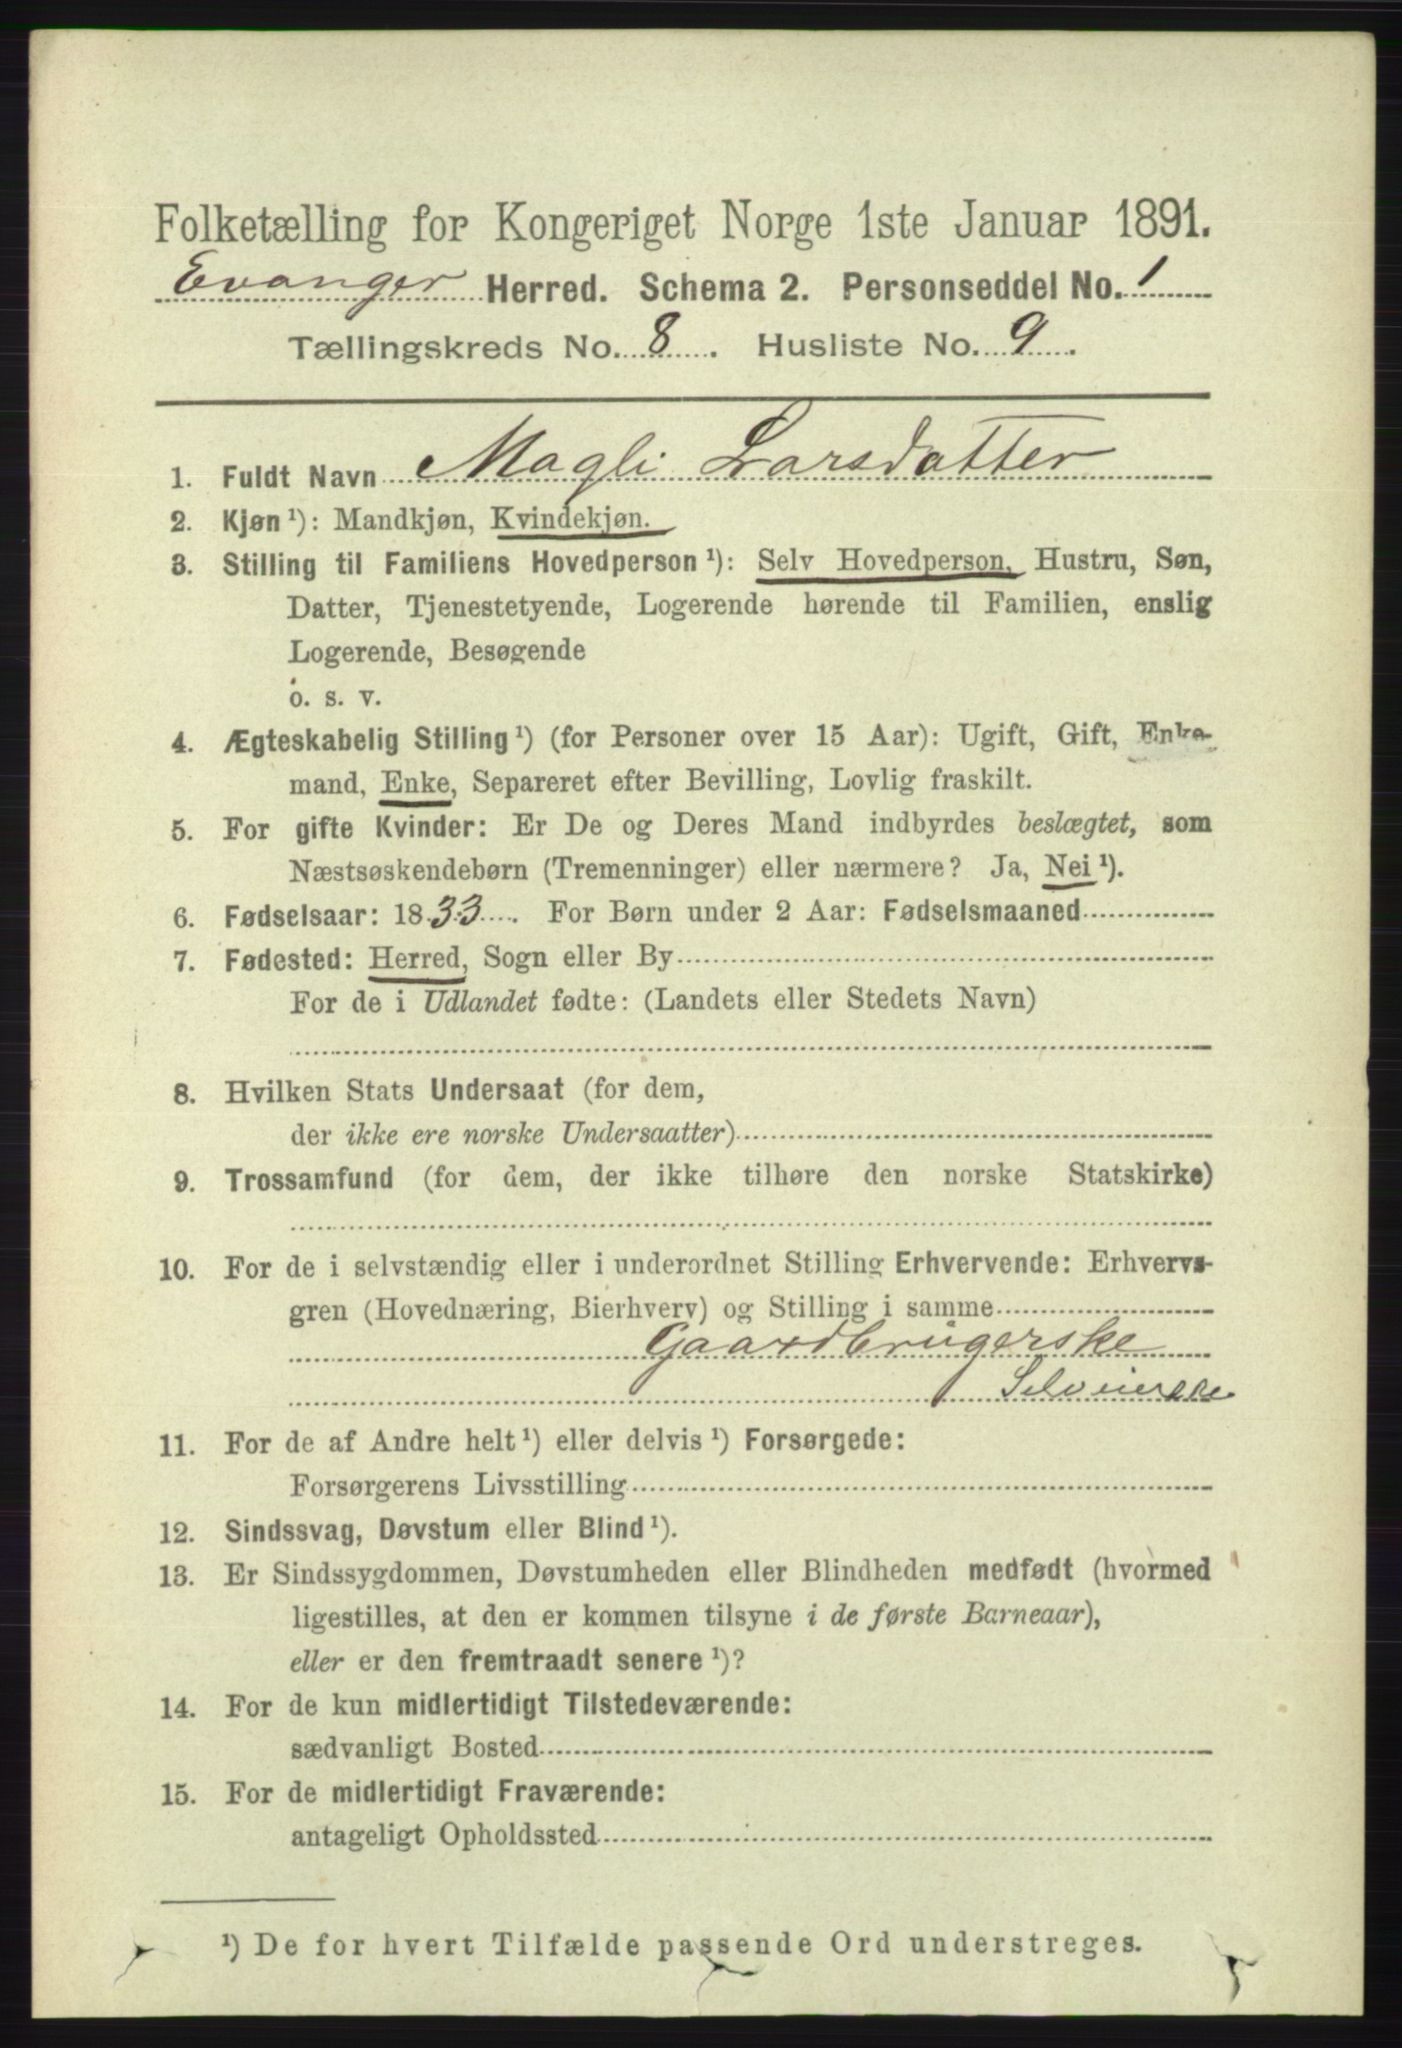 Folketælling for Kongeriget Norge 1ste Januar 1891.
Evanger Herred. Schema 2. Personseddel No. 1
Tællingskreds No. 8. Husliste No. 9.
1. Fuldt Navn Magli Larsdatter
2. Kjøn ¹): Mandkjøn, Kvindekjøn.
3. Stilling til Familiens Hovedperson ¹): Selv Hovedperson, Hustru, Søn,
Datter, Tjenestetyende, Logerende hørende til Familien, enslig
Logerende, Besøgende
o. s. v.
4. Ægteskabelig Stilling ¹) (for Personer over 15 Aar): Ugift, Gift, Enke-
mand, Enke, Separeret efter Bevilling, Lovlig fraskilt.
5. For gifte Kvinder: Er De og Deres Mand indbyrdes beslægtet, som
Næstsøskendebørn (Tremenninger) eller nærmere? Ja, Nei ¹).
6. Fødselsaar: 1833. For Børn under 2 Aar: Fødselsmaaned
7. Fødested: Herred, Sogn eller By
For de i Udlandet fødte: (Landets eller Stedets Navn)
8. Hvilken Stats Undersaat (for dem,
der ikke ere norske Undersaatter)
9. Trossamfund (for dem, der ikke tilhøre den norske Statskirke)
10. For de i selvstændig eller i underordnet Stilling Erhvervende: Erhvervs-
gren (Hovednæring, Bierhverv) og Stilling i samme
Gaardbrugerske
Selveierske
11. For de af Andre helt ¹) eller delvis ¹) Forsørgede:
Forsørgerens Livsstilling
12. Sindssvag, Døvstum eller Blind ¹).
13. Er Sindssygdommen, Døvstumheden eller Blindheden medfødt (hvormed
ligestilles, at den er kommen tilsyne i de første Barneaar),
eller er den fremtraadt senere ¹)?
14. For de kun midlertidigt Tilstedeværende:
sædvanligt Bosted
15. For de midlertidigt Fraværende:
antageligt Opholdssted
¹) De for hvert Tilfælde passende Ord understreges.